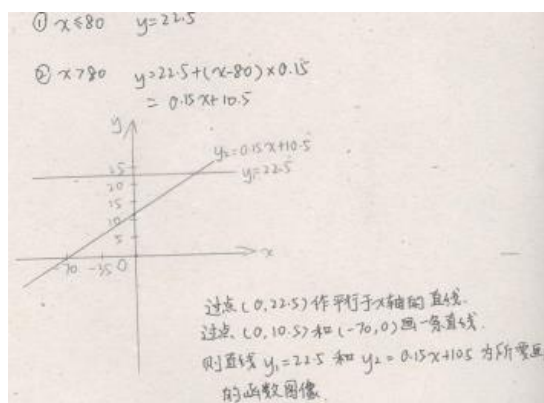 ① x≤80 y=22.5
② x>80 y=22.5+(x-80)×0.15
= 0.15x+10.5
y
y₂=0.15x+10.5
y₁=22.5
25
20
15
10
5
-70 -35 0 x
过点(0,22.5)作平行于x轴的直线.
过点(0,10.5)和(-70,0)画一条直线.
则直线y₁=22.5和y₂=0.15x+10.5为所要画
的函数图像.